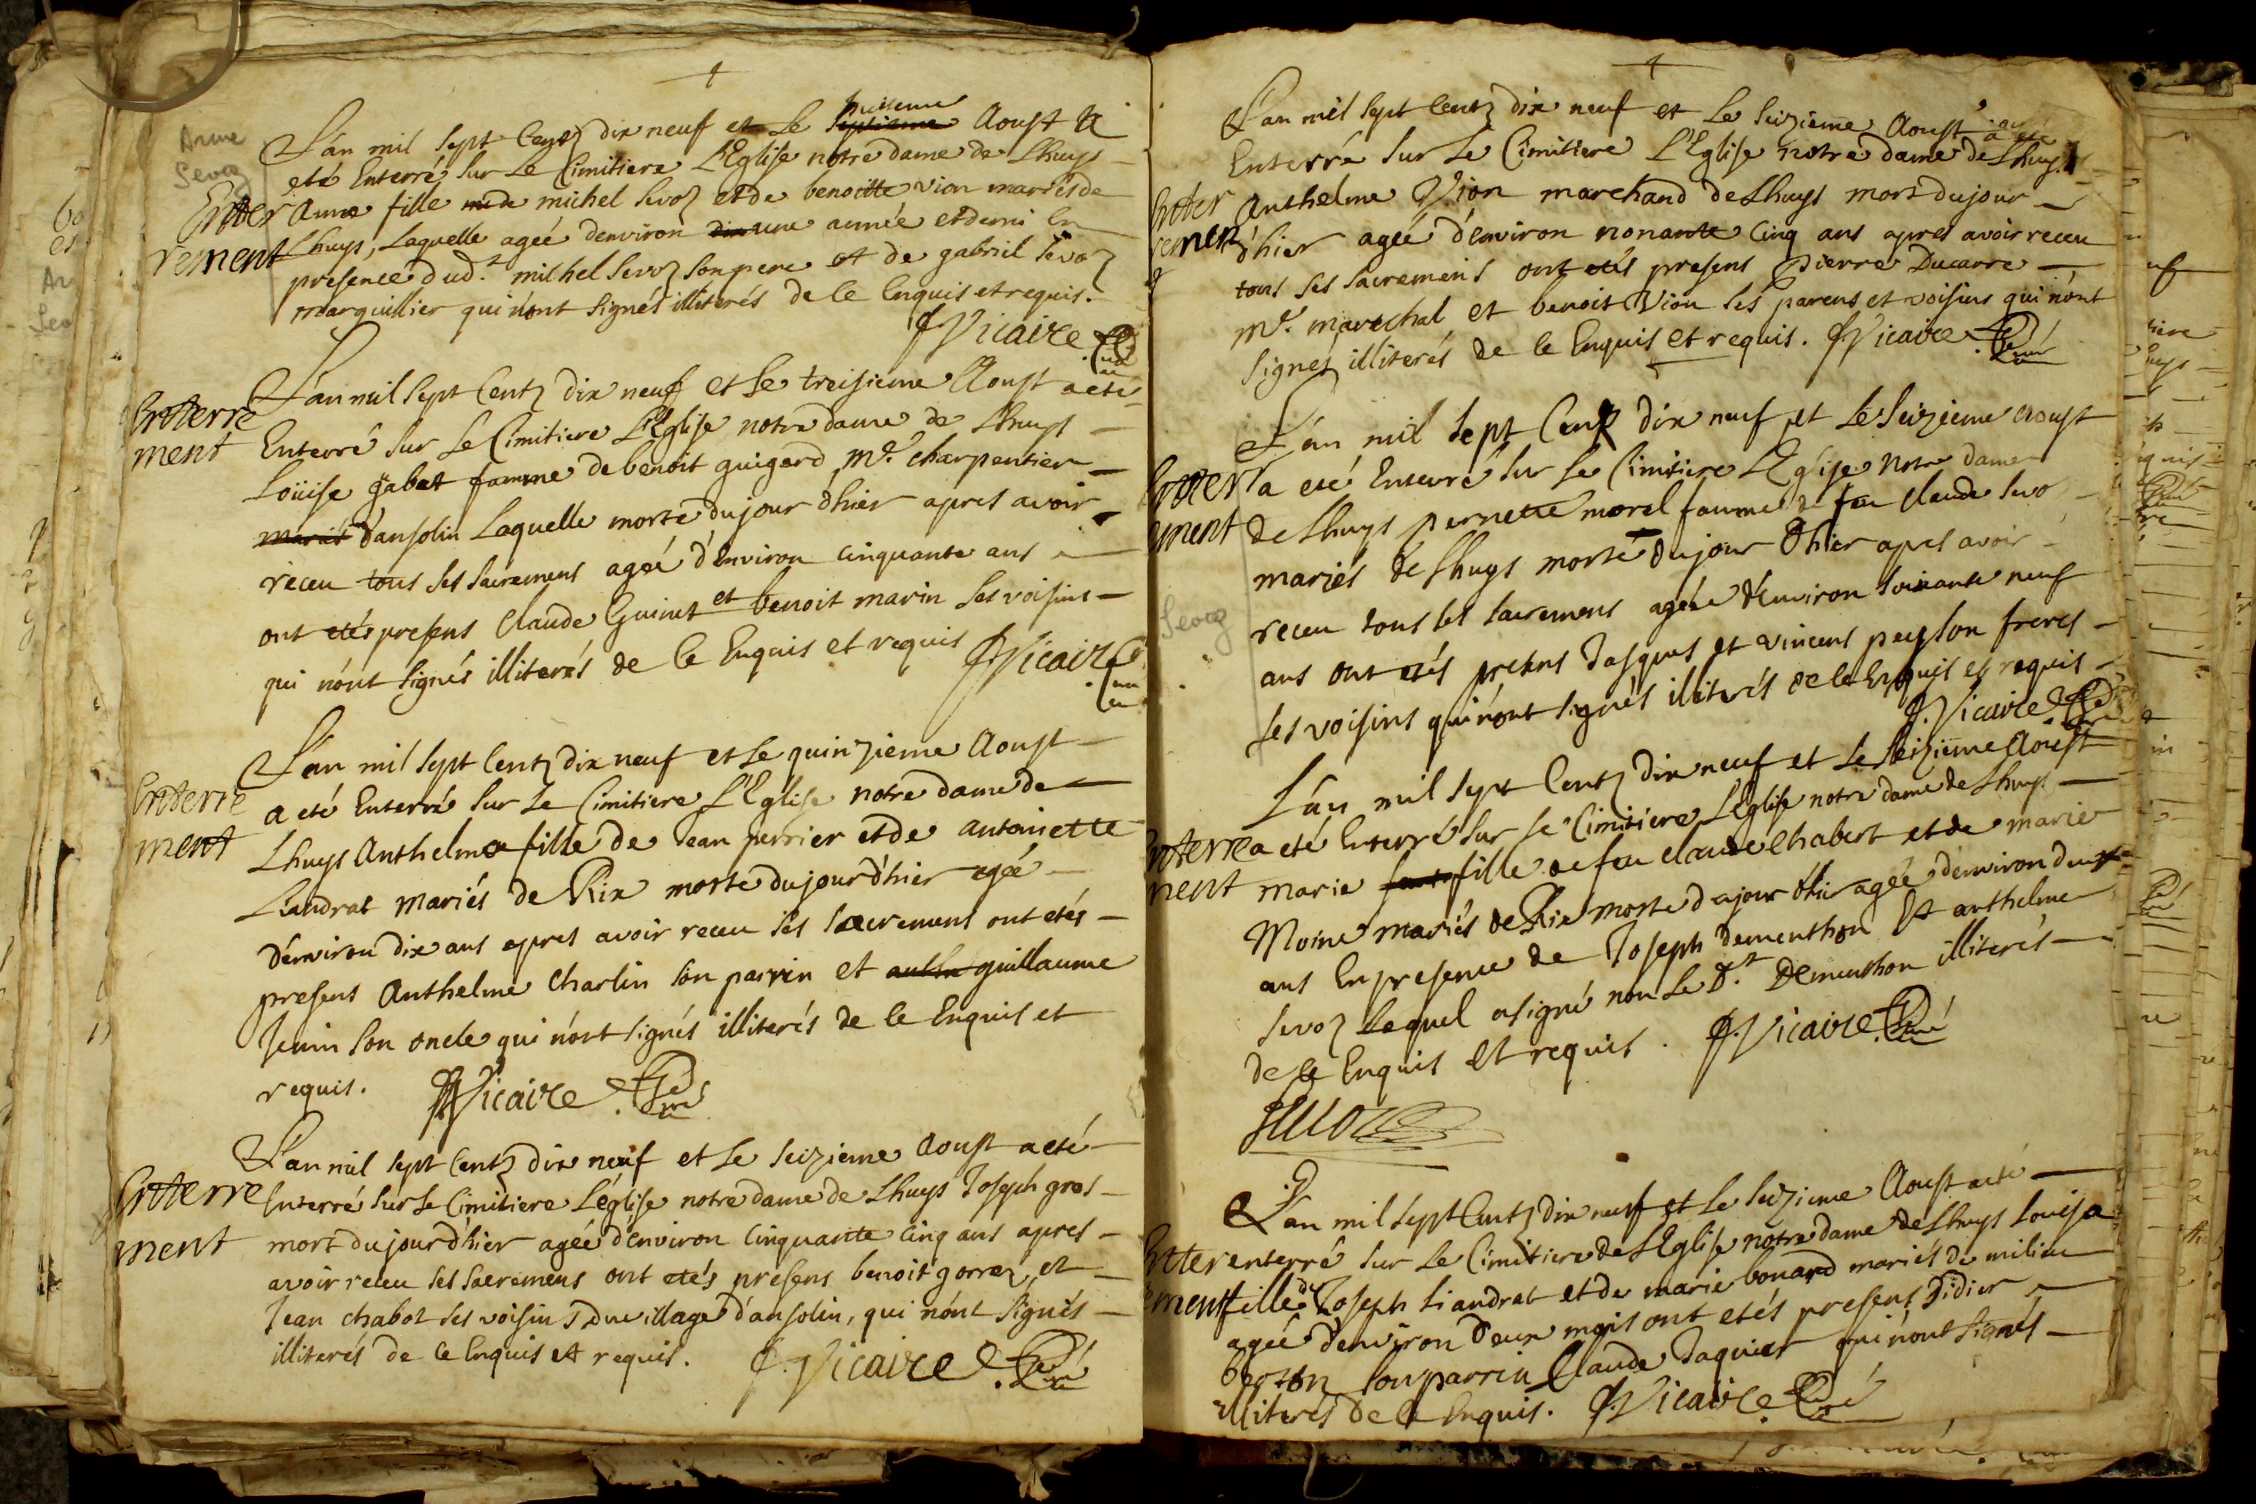 Anne
Sevoz
L'an mil sept Centz dix neuf et Le septieme huitieme Aoust a
eté Enterré sur Le Cimitiere L'Eglise notre dame de Lhuys
Enter
rement
Anne fille de michel sevoz et de benoitte vion mariés de
Lhuys, Laquelle ageé d'environ dix une année et demi En
presence dud.t michel sevoz son pere et de gabriel sevoz
marguillier qui n'ont signés illiterés de ce Enquis et requis.
J Vicaire Curé
Enterre
ment
L'an mil sept Centz dix neuf et Le treisieme Aoust a eté
Enterré sur Le Cimitiere L'Eglise notre dame de Lhuys
Loüise gabet famme de benoit guigard M.e charpentier
mariés d'ansolin Laquelle morte du jour d'hier apres avoir
receu tous ses sacremens ageé d'environ cinquante ans
ont etés presens Claude Guinet et benoit marin ses voisins
qui n'ont signés illiterés de ce Enquis et requis J Vicaire Curé
Enterre
ment
L'an mil sept Centz dix neuf et Le quinzieme Aoust
a eté Enterré sur Le Cimitiere L'Eglise notre dame de
Lhuys Anthelme fille de Jean perrier et de antoinette
Liandrat mariés de Rix morte du jour d'hier ageé
d'environ dix ans apres avoir receu ses sacremens ont etés
presens Anthelme Charlin son parrin et guillaume
Jenin son oncle qui n'ont signés illiterés de ce Enquis et
requis. J Vicaire Curé
Enterre
ment
L'an mil sept Centz dix neuf et Le seizieme Aoust a eté
Enterré sur Le Cimitiere L'église notre dame de Lhuys Joseph gros
mort du jour d'hier ageé d'environ Cinquante Cinq ans apres
avoir receu ses sacremens ont etés presens benoit gorrez et
Jean chabot ses voisins du village d'ansolin, qui n'ont signés
illiterés de ce Enquis et requis. J. Vicaire Curé
L'an mil sept Centz dix neuf et Le seizieme Aoust a eté
Enterré sur Le Cimitiere L'Eglise notre dame de Lhuys
Enter
rement
Anthelme Vion marchand de Lhuys mort du jour
d'hier ageé d'environ nonante Cinq ans apres avoir receu
tous ses sacremens ont etés presens Pierre Ducarre
M.e marechal et benoit Vion ses parens et voisins qui n'ont
signes illiterés de ce Enquis et requis. J Vicaire Curé
L'an mil sept Centz dix neuf et Le seizieme Aoust
Enterr
ement
a eté Enterré sur Le Cimitiere L'Eglise Notre dame
de Lhuys pernette morel famme de feu Claude sevoz
mariés de Lhuys morte du jour d'hier apres avoir
Sevoz
receu tous les sacremens ageé d'environ soixante neuf
ans ont etés presens Jasques et vincent peyson freres
ses voisins qui n'ont signés illiterés de ce Enquis et requis
J. Vicaire Curé
L'an mil sept Centz dix neuf et Le seizieme Aoust
Enterre
ment
a eté Enterré sur Le Cimitiere L'Eglise notre dame de Lhuys
marie fille de feu claude Chabert et de marie
Moine mariés de Rix morte du jour d'hier ageé d'environ deux
ans En presence de Joseph dementhon Et anthelme
sevoz Lequel a signé non Le D.t Dementhon illiterés
de ce Enquis et requis. J. Vicaire Curé
Sevoz
L'an mil sept Centz dix neuf et Le seizieme Aoust a eté
Enter
ement
enterré sur Le Cimitiere de L'Eglise notre dame de Lhuys Louisa
fille de Joseph Liandrat et de marie bonard mariés de milieu
ageé d'environ deux mois ont etés presens Didier
berton son parrin Claude Jaquier qui n'ont signés
illiterés de ce Enquis. J. Vicaire Curé